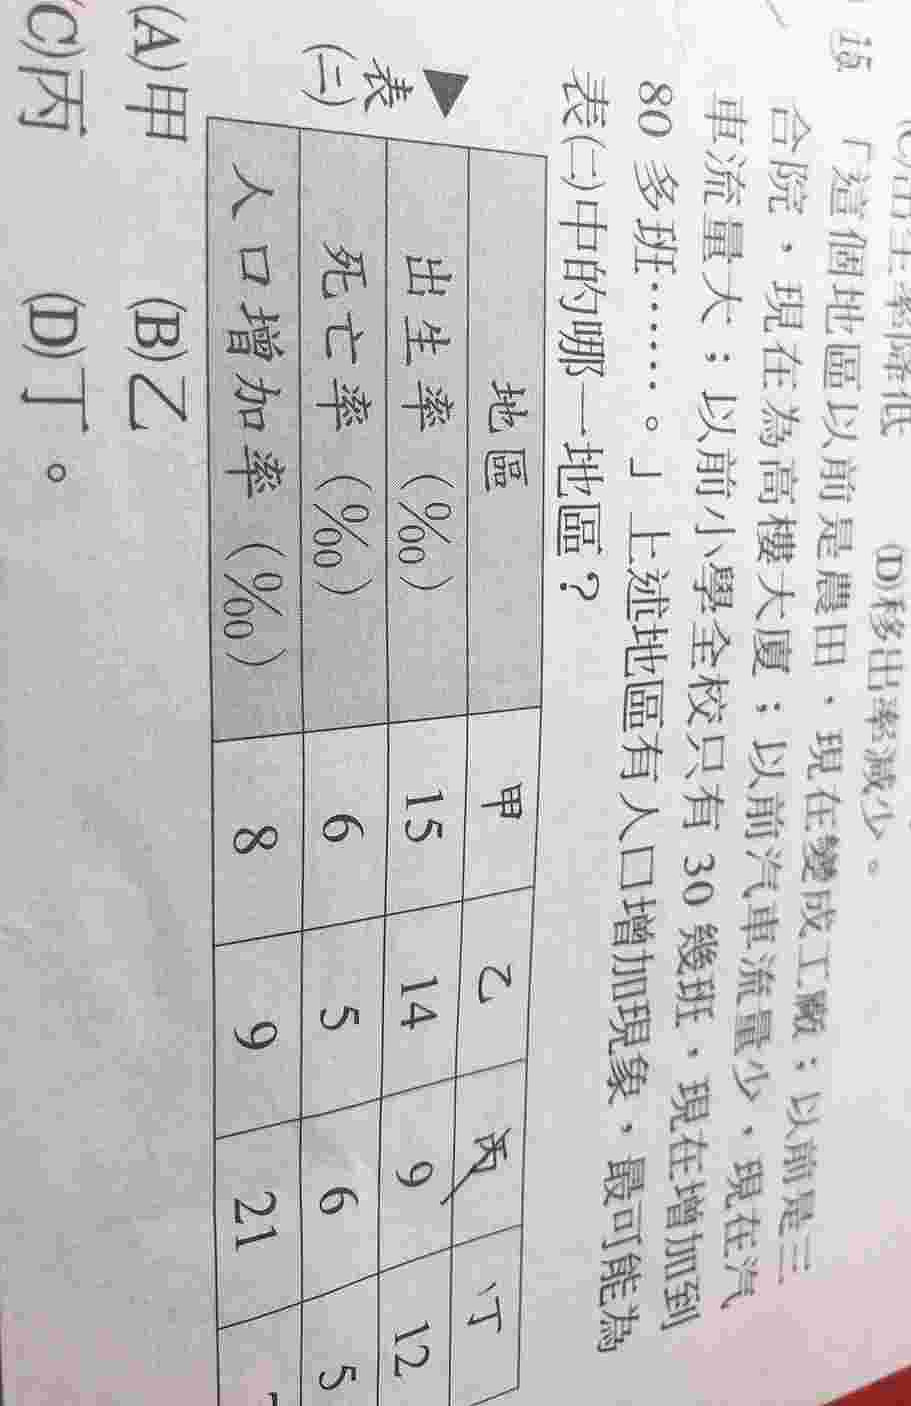 出生率降低 (D)移出率減少。
「這個地區以前是農田，現在變成工廠；以前是三
合院，現在為高樓大廈；以前汽車流量少，現在汽
車流量大；以前小學全校只有 30 幾班，現在增加到
80 多班……。」上述地區有人口增加現象，最可能為
表(二)中的哪一地區？
▲表(二)
地區 甲 乙 丙 丁
出生率（‰） 15 14 9 12
死亡率（‰） 6 5 6 5
人口增加率（‰） 8 9 21
(A)甲 (B)乙
(C)丙 (D)丁。